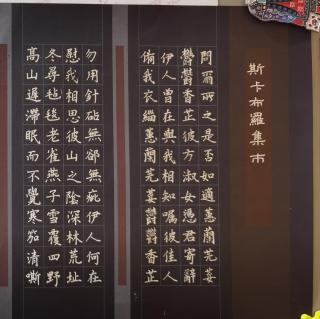 斯卡布羅集市
問爾所之是否如適蕙蘭芫荽
鬱鬱香芷彼方淑女憑君寄辭
伊人曾在與我相知囑彼佳人
備我衣緇蕙蘭芫荽鬱鬱香芷
勿用針砧無卻無疵伊人何在
慰我相思彼山之陰深林荒址
冬尋毡毯老雀燕子雪覆四野
高山遲滯眠而不覺寒笳清嘶